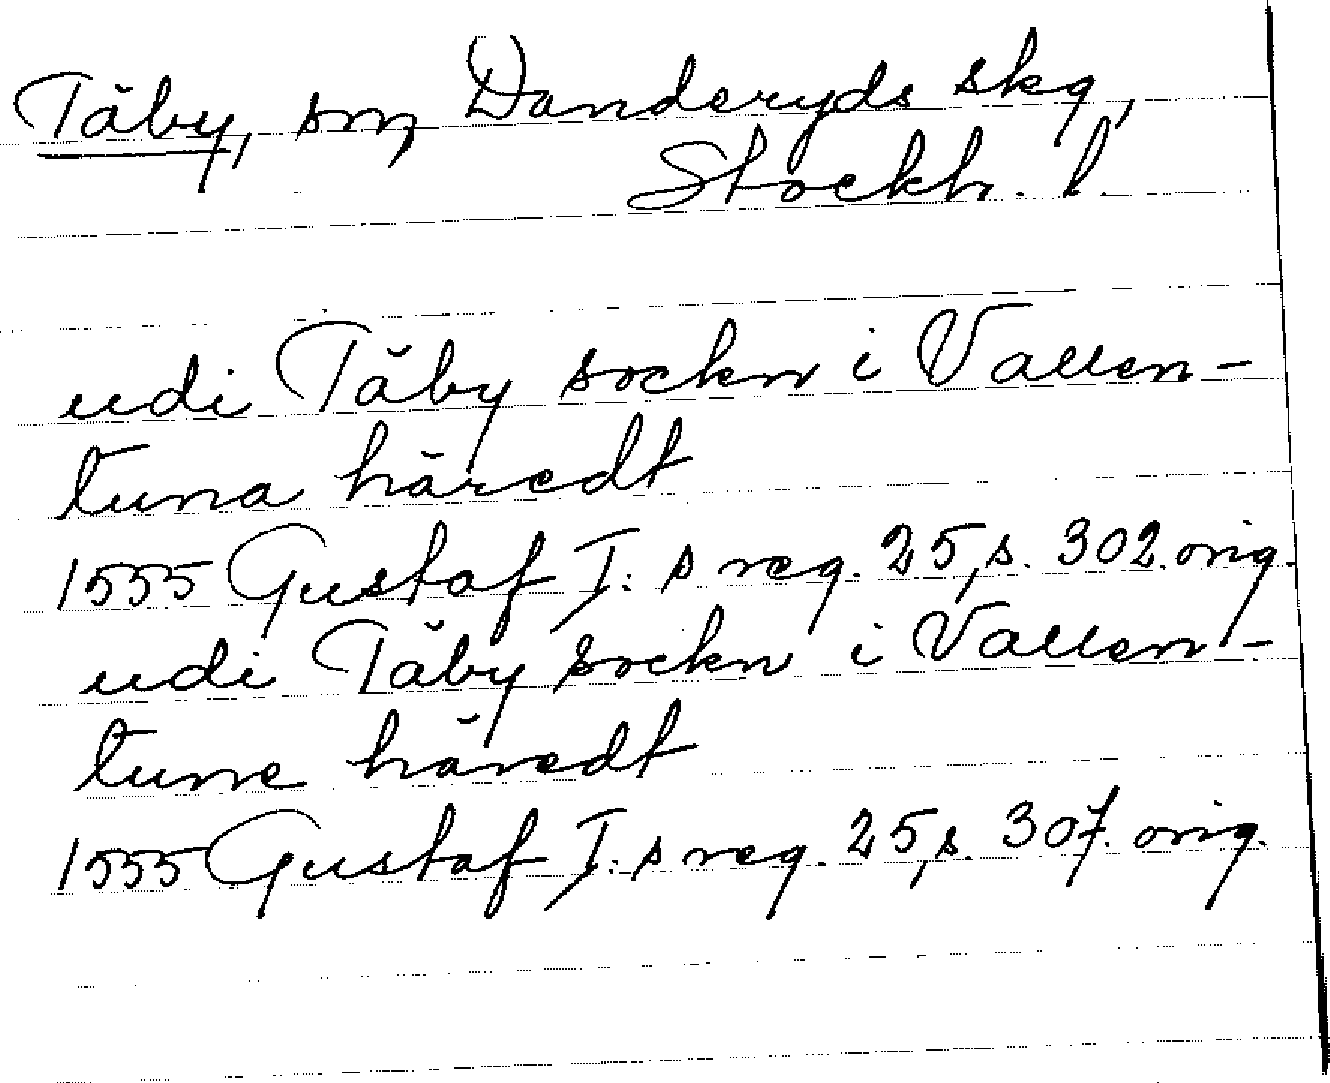 Täby, sn, Danderyds skg,
Stockh. l.
udi Täby sockn i Vallen-
tuna häredt
1555 Gustaf I:s reg. 25, s. 302. orig.
udi Täby sockn i Vallen-
tune häredt
1555 Gustaf I:s reg. 25, s. 307. orig.